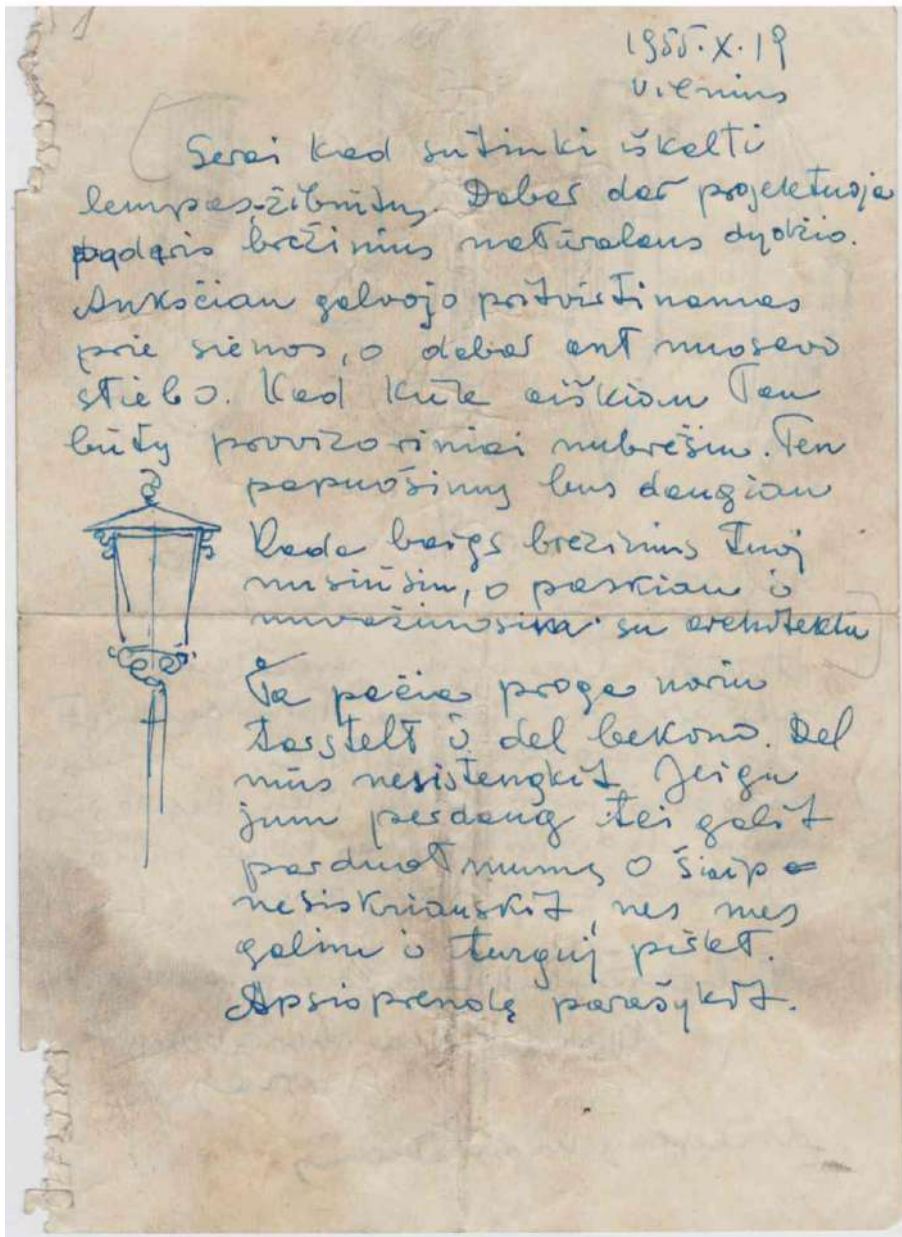 1955.X.19
Vilnius
Gerai kad sutinki iškalti
lempas-žibintus. Dabar dar projektuoja
padarys brėžinius natūralaus dydžio.
Anksčiau galvojo pritvirtinamas
prie sienos, o dabar ant nuosavo
stiebo. Kad kiek aiškiau Tau
būtų provizoriniai nubrėšiu. Ten
papuošimų bus daugiau
Kada baigs brėžinius tuoj
nusiūsiu, o paskiau ir
nuvažiuosiva su architektu
Ta pačia proga noriu
tarstelt ir del bekono. Del
mūs nesistengkit Jeigu
jum perdaug tai galit
parduot mums O šiaip
nesiskriauskit, nes mes
galim ir turguj pirkt.
Apsisprendę parašykit.